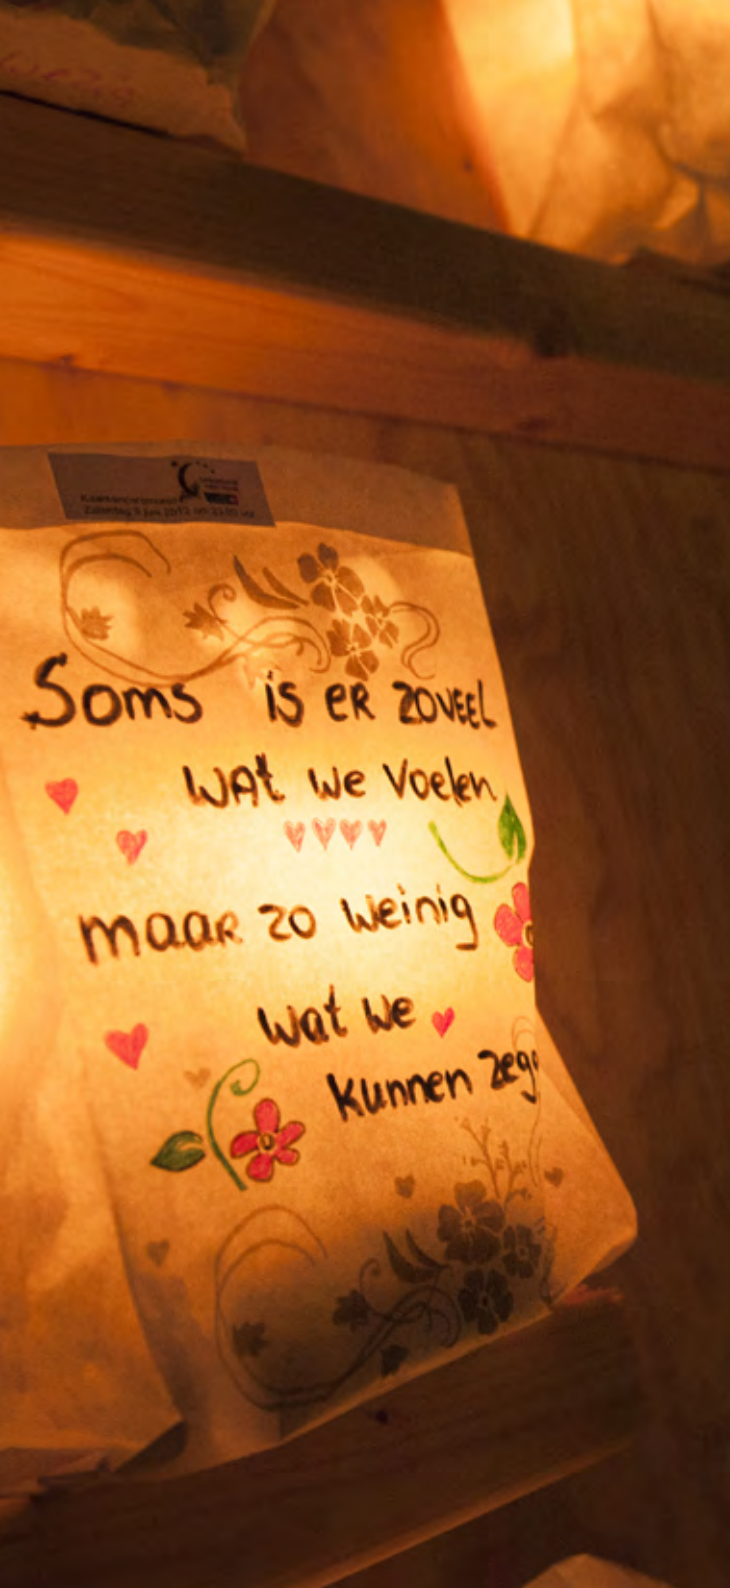 Soms is er zoveel
wat we voelen
maar zo weinig
wat we
kunnen zeg